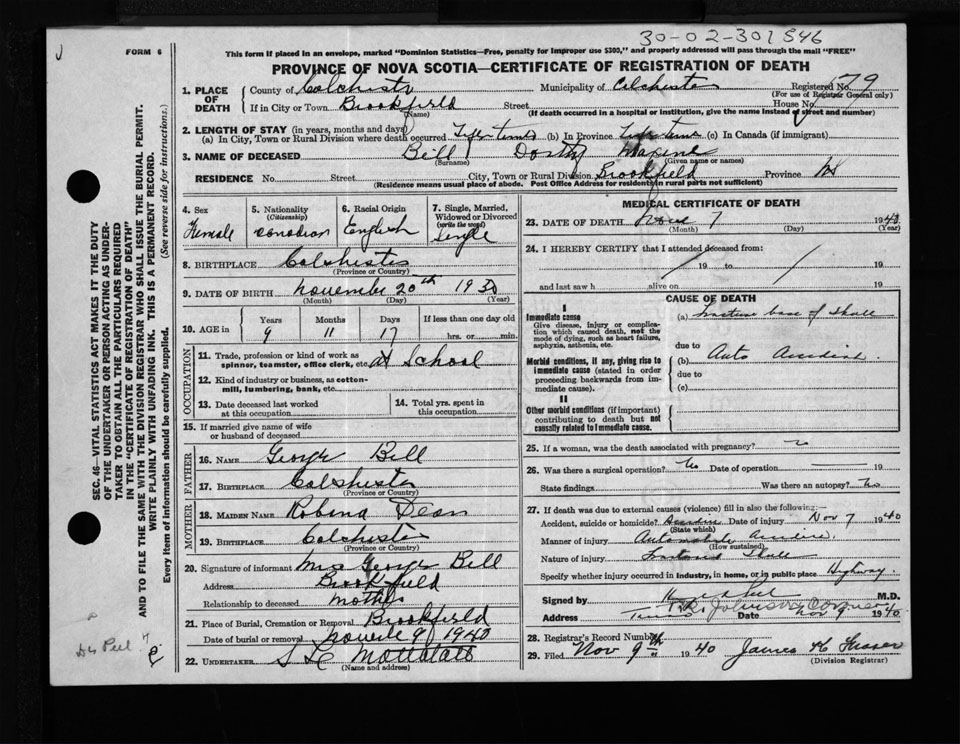 30-02-301546
FORM 6
This form if placed in an envelope, marked "Dominion Statistics—Free, penalty for improper use $300," and properly addressed will pass through the mail "FREE"
PROVINCE OF NOVA SCOTIA—CERTIFICATE OF REGISTRATION OF DEATH
1. PLACE OF DEATH
County of Colchester Municipality of Colchester Registered No. 579
(For use of Registrar General only)
If in City or Town Brookfield Street House No.
(Name) (If death occurred in a hospital or institution, give the name instead of street and number)
2. LENGTH OF STAY (in years, months and days)
(a) In City, Town or Rural Division where death occurred Life time (b) In Province Life time (c) In Canada (if immigrant)
3. NAME OF DECEASED Bill Maxine
(Surname) (Given name or names)
RESIDENCE No. Street City, Town or Rural Division Brookfield Province NS
(Residence means usual place of abode. Post Office Address for residents in rural parts not sufficient)
4. Sex
Female
5. Nationality
(Citizenship)
Canadian
6. Racial Origin
English
7. Single, Married, Widowed or Divorced
(write the word)
Single
8. BIRTHPLACE Colchester
(Province or Country)
9. DATE OF BIRTH November 20th 1930
(Month) (Day) (Year)
10. AGE in
Years Months Days If less than one day old
9 11 17 hrs. or min.
OCCUPATION
11. Trade, profession or kind of work as spinner, teamster, office clerk, etc. at School
12. Kind of industry or business, as cotton-mill, lumbering, bank, etc.
13. Date deceased last worked at this occupation
14. Total yrs. spent in this occupation
15. If married give name of wife or husband of deceased
FATHER
16. NAME George Bill
17. BIRTHPLACE Colchester
(Province or Country)
MOTHER
18. MAIDEN NAME
19. BIRTHPLACE Colchester
(Province or Country)
20. Signature of informant Mrs George Bill
Address Brookfield
Relationship to deceased Mother
21. Place of Burial, Cremation or Removal Brookfield
Date of burial or removal 9 1940
22. UNDERTAKER
(Name and address)
MEDICAL CERTIFICATE OF DEATH
23. DATE OF DEATH 7 1940
(Month) (Day) (Year)
24. I HEREBY CERTIFY that I attended deceased from:
19 to 19
and last saw h alive on 19
CAUSE OF DEATH
I
Immediate cause
Give disease, injury or complication which caused death, not the mode of dying, such as heart failure, asphyxia, asthenia, etc.
(a) Fracture base of skull
due to
Morbid conditions, if any, giving rise to immediate cause (stated in order proceeding backwards from immediate cause).
(b) Auto Accident
due to
(c)
II
Other morbid conditions (if important) contributing to death but not causally related to immediate cause.
25. If a woman, was the death associated with pregnancy? no
26. Was there a surgical operation? No Date of operation 19
State findings Was there an autopsy? No
27. If death was due to external causes (violence) fill in also the following:—
Accident, suicide or homicide? Date of injury Nov 7 1940
(State which)
Manner of injury Automobile
(How sustained)
Nature of injury Skull
Specify whether injury occurred in industry, in home, or in public place Highway.
Signed by M.D.
Address Date Nov 9 1940
28. Registrar's Record Number
29. Filed Nov 9th 1940 James
(Division Registrar)
SEC. 46—VITAL STATISTICS ACT MAKES IT THE DUTY
OF THE UNDERTAKER OR PERSON ACTING AS UNDER-
TAKER TO OBTAIN ALL THE PARTICULARS REQUIRED
IN THE "CERTIFICATE OF REGISTRATION OF DEATH"
AND TO FILE THE SAME WITH THE DIVISION REGISTRAR WHO SHALL ISSUE THE BURIAL PERMIT.
WRITE PLAINLY WITH UNFADING INK. THIS IS A PERMANENT RECORD.
Every item of information should be carefully supplied. (See reverse side for instructions.)